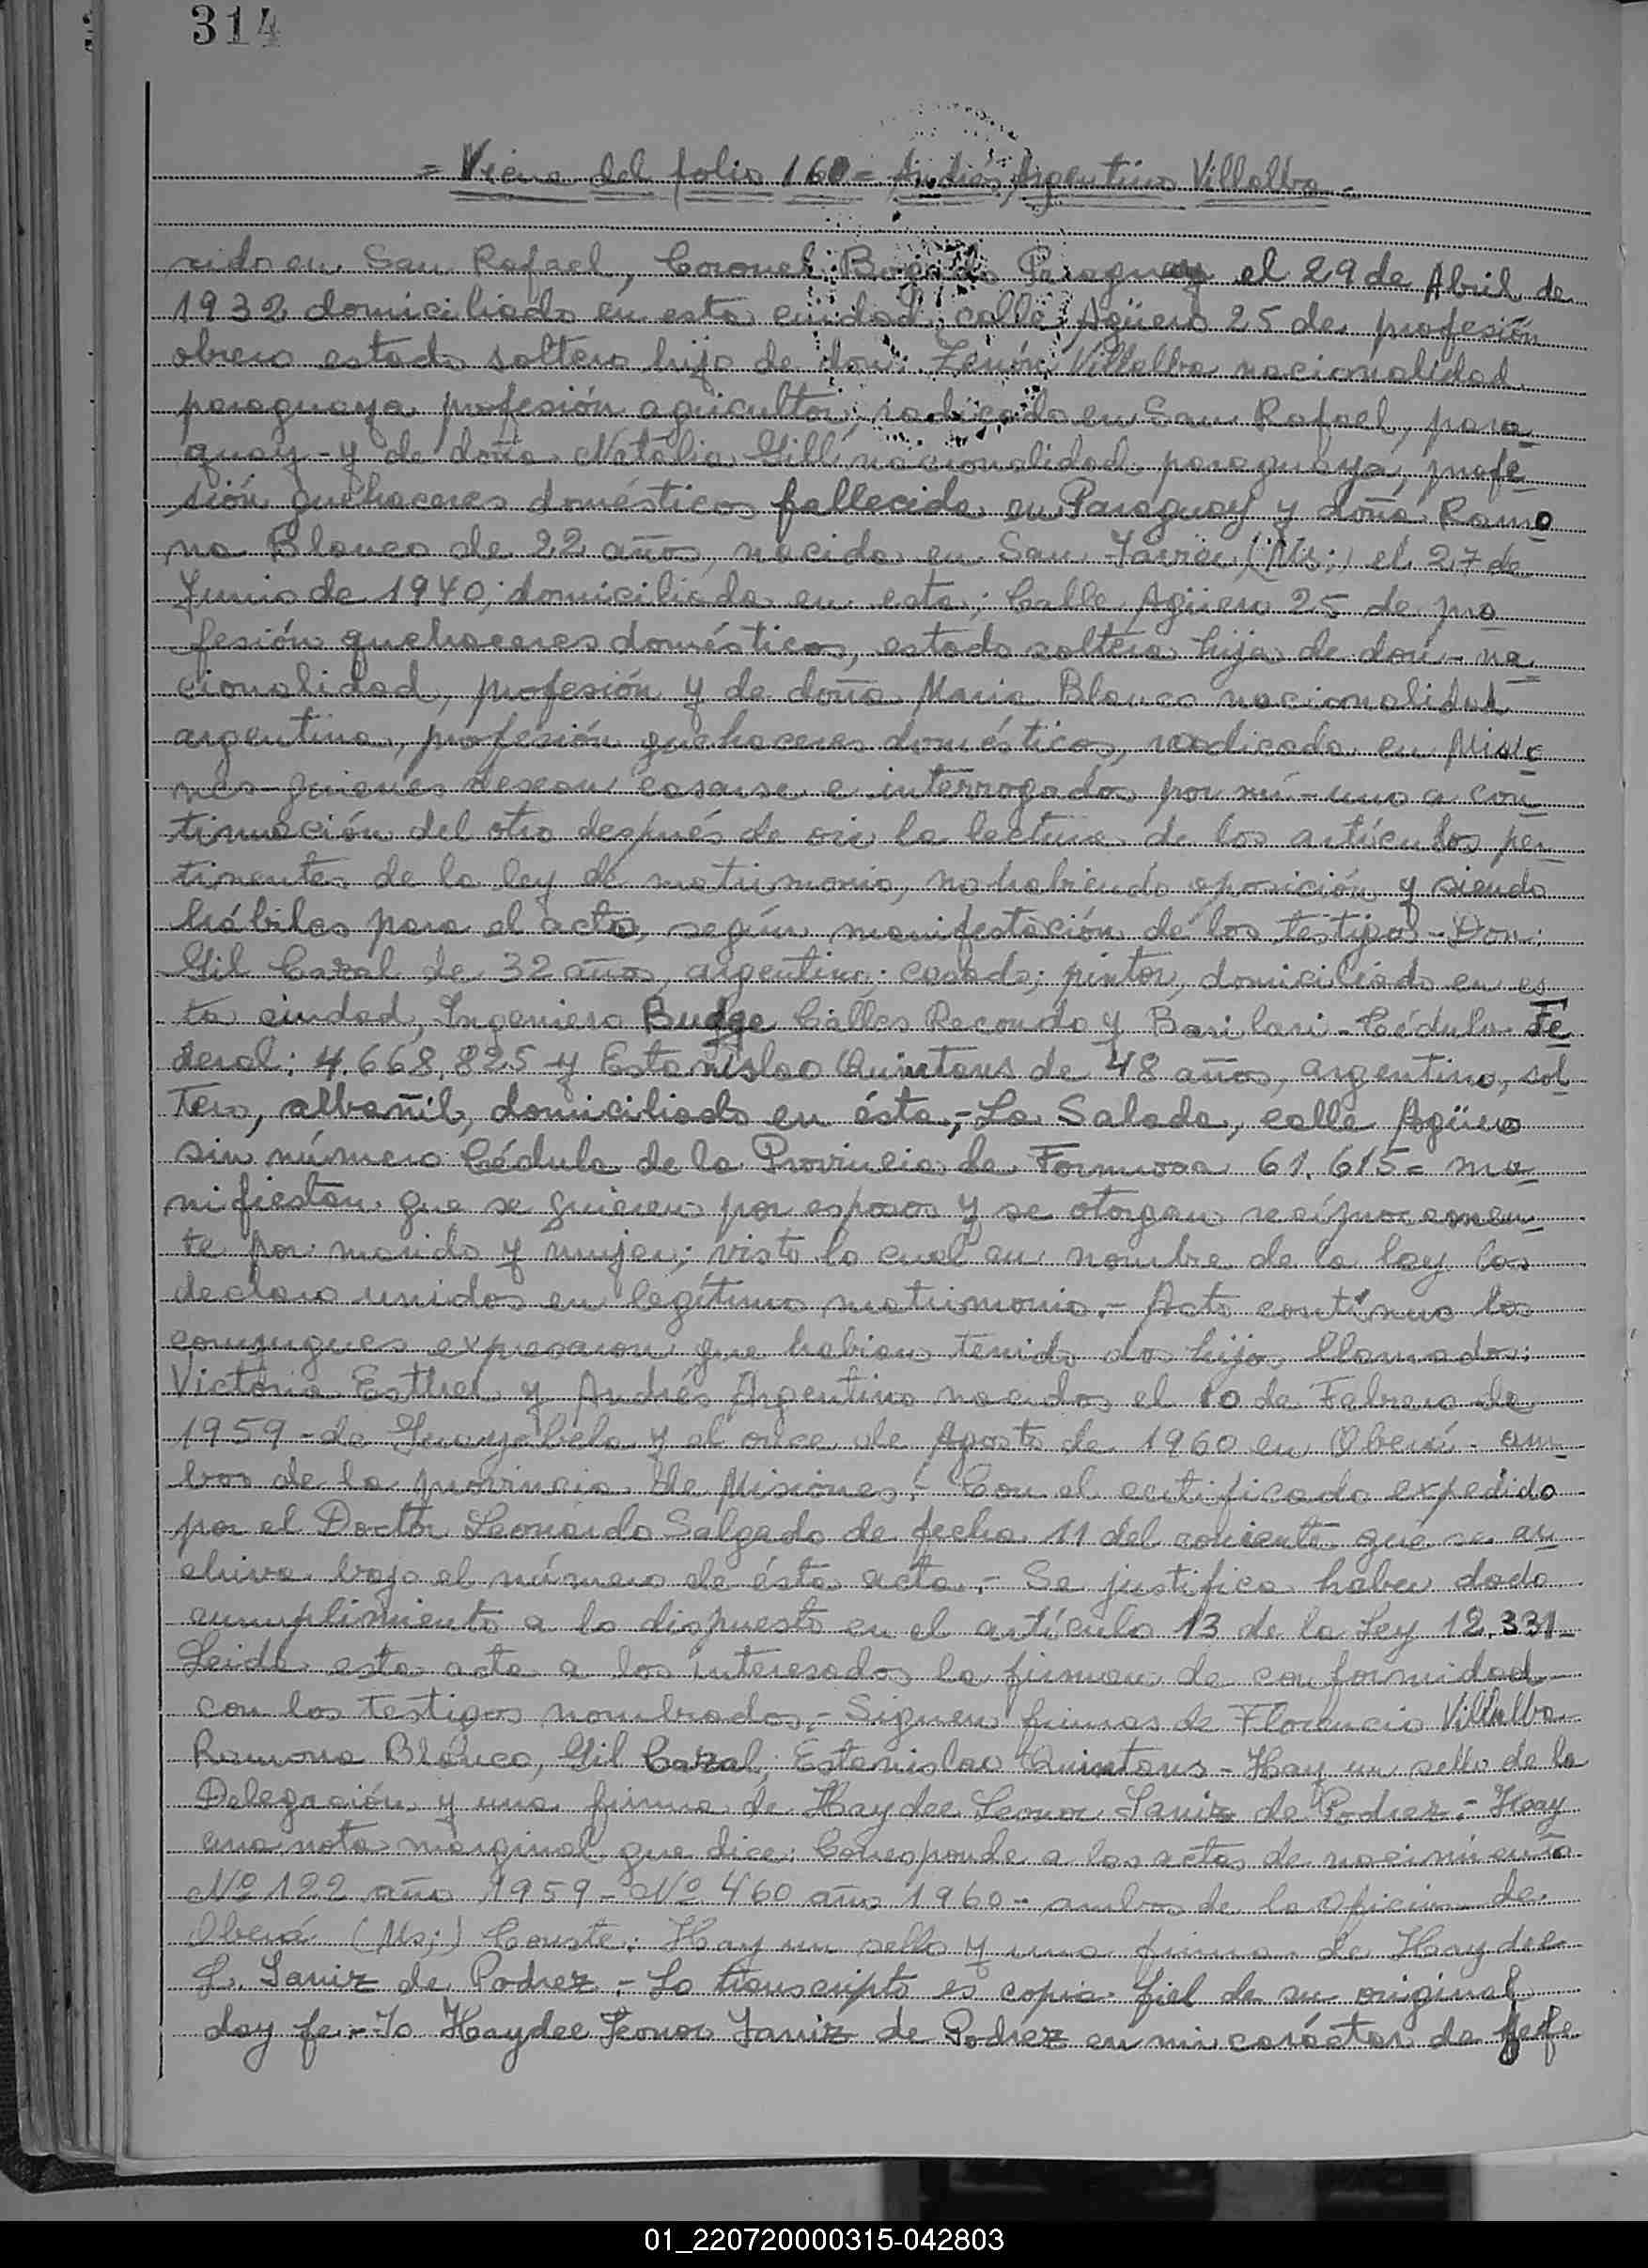 314
= Viene del folio 160 = Andrés Argentino Villalba =
cido en San Rafael, Coronel Bogado Paraguay el 29 de Abril de
1932 domiciliado en esta ciudad, calle Agüero 25 de profesión
obrero estado soltero hijo de don: Zenón Villalba nacionalidad
paraguaya profesión agricultor, radicado en San Rafael, para
guay - y de doña Natalia Gill nacionalidad paraguaya, profe
sión quehaceres domésticos fallecida en Paraguay y doña Ramo
na Blanco de 22 años, nacida en San Javier (Ms;) el 27 de
Junio de 1940; domiciliada en esta; Calle Agüero 25 de pro
fesión quehaceres domésticos, estado soltera hija de don - na
cionalidad, profesión y de doña Maria Blanco nacionalidad
argentina, profesión quehaceres domésticos, radicada en Misio
nes - quienes desean casarse e interrogados por mí - uno a con
tinuación del otro después de oir la lectura de los artículos per
tinentes de la ley de matrimonio, no habiendo oposición y siendo
hábiles para el acto, según manifestación de los testigos - Don:
Gil Cazal de 32 años, argentino; casado; pintor, domiciliado en es
ta ciudad, Ingeniero Budge Calles Recondo y Barilari - Cédula Fe
deral: 4.668.825 - y Estanislao Quintans de 48 años, argentino, sol
tero, albañil, domiciliado en ésta,- La Salada, calle Agüero
sin número Cédula de la Provincia de Formosa 61.615 = ma
nifiestan que se quieren por esposos y se otorgan recíprocamen
te por marido y mujer; visto lo cual en nombre de la ley los
declaro unidos en legítimo matrimonio.- Acto contínuo los
conyugues expresaron que habian tenido dos hijos llamados:
Victoria Esther y Andrés Argentino nacidos el 10 de Febrero de
1959 - de Guayabela y el once de Agosto de 1960 en Oberá - am
bos de la provincia de Misiones.- Con el certificado expedido
por el Doctor Leonardo Salgado de fecha 11 del corriente que se ar
chiva bajo el número de ésta acta.- Se justifica haber dado
cumplimiento a lo dispuesto en el artículo 13 de la Ley 12.331-
Leida esta acta a los interesados la firman de conformidad
con los testigos nombrados.- Siguen firmas de Florencio Villalba
Ramona Blanco, Gil Cazal, Estanislao Quintans - Hay un sello de la
Delegación y una firma de Haydee Leonor Saniz de Podrez.- Hay
una nota marginal que dice: Corresponde a las actas de nacimiento
Nº 122 año 1959 - Nº 460 año 1960 - ambos de la Oficina de
Oberá (Ms;) Conste: Hay un sello y una firma de Haydee
L. Saniz de Podrez.- Lo transcripto es copia fiel de su original
doy fe.- Yo Haydee Leonor Saniz de Podrez en mi carácter de Jefe
01_220720000315-042803